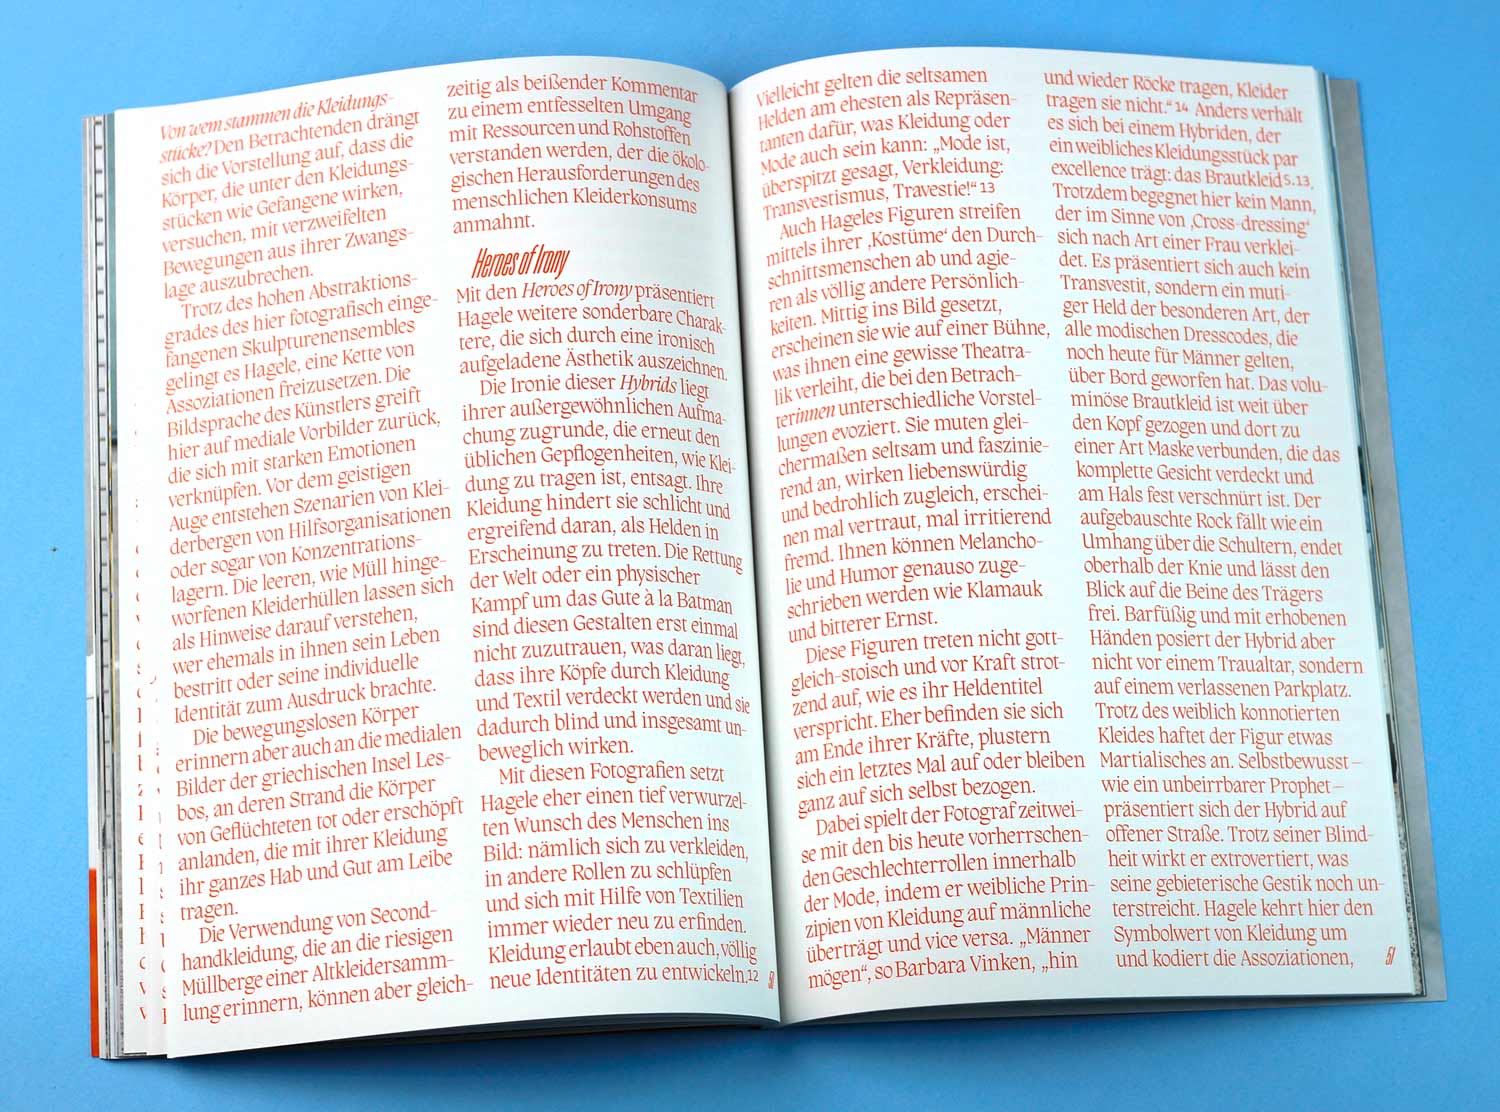 Von wem stammen die Kleidungs-
stücke? Den Betrachtenden drängt
sich die Vorstellung auf, dass die
Körper, die unter den Kleidungs-
stücken wie Gefangene wirken,
versuchen, mit verzweifelten
Bewegungen aus ihrer Zwangs-
lage auszubrechen.
Trotz des hohen Abstraktions-
grades des hier fotografisch einge-
fangenen Skulpturenensembles
gelingt es Hagele, eine Kette von
Assoziationen freizusetzen. Die
Bildsprache des Künstlers greift
hier auf mediale Vorbilder zurück,
die sich mit starken Emotionen
verknüpfen. Vor dem geistigen
Auge entstehen Szenarien von Klei-
derbergen von Hilfsorganisationen
oder sogar von Konzentrations-
lagern. Die leeren, wie Müll hinge-
worfenen Kleiderhüllen lassen sich
als Hinweise darauf verstehen,
wer ehemals in ihnen sein Leben
bestritt oder seine individuelle
Identität zum Ausdruck brachte.
Die bewegungslosen Körper
erinnern aber auch an die medialen
Bilder der griechischen Insel Les-
bos, an deren Strand die Körper
von Geflüchteten tot oder erschöpft
anlanden, die mit ihrer Kleidung
ihr ganzes Hab und Gut am Leibe
tragen.
Die Verwendung von Second-
handkleidung, die an die riesigen
Müllberge einer Altkleidersamm-
lung erinnern, können aber gleich-
zeitig als beißender Kommentar
zu einem entfesselten Umgang
mit Ressourcen und Rohstoffen
verstanden werden, der die ökolo-
gischen Herausforderungen des
menschlichen Kleiderkonsums
anmahnt.
Heroes of Irony
Mit den Heroes of Irony präsentiert
Hagele weitere sonderbare Charak-
tere, die sich durch eine ironisch
aufgeladene Ästhetik auszeichnen.
Die Ironie dieser Hybrids liegt
ihrer außergewöhnlichen Aufma-
chung zugrunde, die erneut den
üblichen Gepflogenheiten, wie Klei-
dung zu tragen ist, entsagt. Ihre
Kleidung hindert sie schlicht und
ergreifend daran, als Helden in
Erscheinung zu treten. Die Rettung
der Welt oder ein physischer
Kampf um das Gute à la Batman
sind diesen Gestalten erst einmal
nicht zuzutrauen, was daran liegt,
dass ihre Köpfe durch Kleidung
und Textil verdeckt werden und sie
dadurch blind und insgesamt un-
beweglich wirken.
Mit diesen Fotografien setzt
Hagele eher einen tief verwurzel-
ten Wunsch des Menschen ins
Bild: nämlich sich zu verkleiden,
in andere Rollen zu schlüpfen
und sich mit Hilfe von Textilien
immer wieder neu zu erfinden.
Kleidung erlaubt eben auch, völlig
neue Identitäten zu entwickeln.12
50
Vielleicht gelten die seltsamen
Helden am ehesten als Repräsen-
tanten dafür, was Kleidung oder
Mode auch sein kann: „Mode ist,
überspitzt gesagt, Verkleidung:
Transvestismus, Travestie!“ 13
Auch Hageles Figuren streifen
mittels ihrer ‚Kostüme‘ den Durch-
schnittsmenschen ab und agie-
ren als völlig andere Persönlich-
keiten. Mittig ins Bild gesetzt,
erscheinen sie wie auf einer Bühne,
was ihnen eine gewisse Theatra-
lik verleiht, die bei den Betrach-
terinnen unterschiedliche Vorstel-
lungen evoziert. Sie muten glei-
chermaßen seltsam und faszinie-
rend an, wirken liebenswürdig
und bedrohlich zugleich, erschei-
nen mal vertraut, mal irritierend
fremd. Ihnen können Melancho-
lie und Humor genauso zuge-
schrieben werden wie Klamauk
und bitterer Ernst.
Diese Figuren treten nicht gott-
gleich-stoisch und vor Kraft strot-
zend auf, wie es ihr Heldentitel
verspricht. Eher befinden sie sich
am Ende ihrer Kräfte, plustern
sich ein letztes Mal auf oder bleiben
ganz auf sich selbst bezogen.
Dabei spielt der Fotograf zeitwei-
se mit den bis heute vorherrschen-
den Geschlechterrollen innerhalb
der Mode, indem er weibliche Prin-
zipien von Kleidung auf männliche
überträgt und vice versa. „Männer
mögen“, so Barbara Vinken, „hin
und wieder Röcke tragen, Kleider
tragen sie nicht.“ 14 Anders verhält
es sich bei einem Hybriden, der
ein weibliches Kleidungsstück par
excellence trägt: das Brautkleid5.13.
Trotzdem begegnet hier kein Mann,
der im Sinne von ‚Cross-dressing‘
sich nach Art einer Frau verklei-
det. Es präsentiert sich auch kein
Transvestit, sondern ein muti-
ger Held der besonderen Art, der
alle modischen Dresscodes, die
noch heute für Männer gelten,
über Bord geworfen hat. Das volu-
minöse Brautkleid ist weit über
den Kopf gezogen und dort zu
einer Art Maske verbunden, die das
komplette Gesicht verdeckt und
am Hals fest verschnürt ist. Der
aufgebauschte Rock fällt wie ein
Umhang über die Schultern, endet
oberhalb der Knie und lässt den
Blick auf die Beine des Trägers
frei. Barfüßig und mit erhobenen
Händen posiert der Hybrid aber
nicht vor einem Traualtar, sondern
auf einem verlassenen Parkplatz.
Trotz des weiblich konnotierten
Kleides haftet der Figur etwas
Martialisches an. Selbstbewusst –
wie ein unbeirrbarer Prophet –
präsentiert sich der Hybrid auf
offener Straße. Trotz seiner Blind-
heit wirkt er extrovertiert, was
seine gebieterische Gestik noch un-
terstreicht. Hagele kehrt hier den
Symbolwert von Kleidung um
und kodiert die Assoziationen,
51